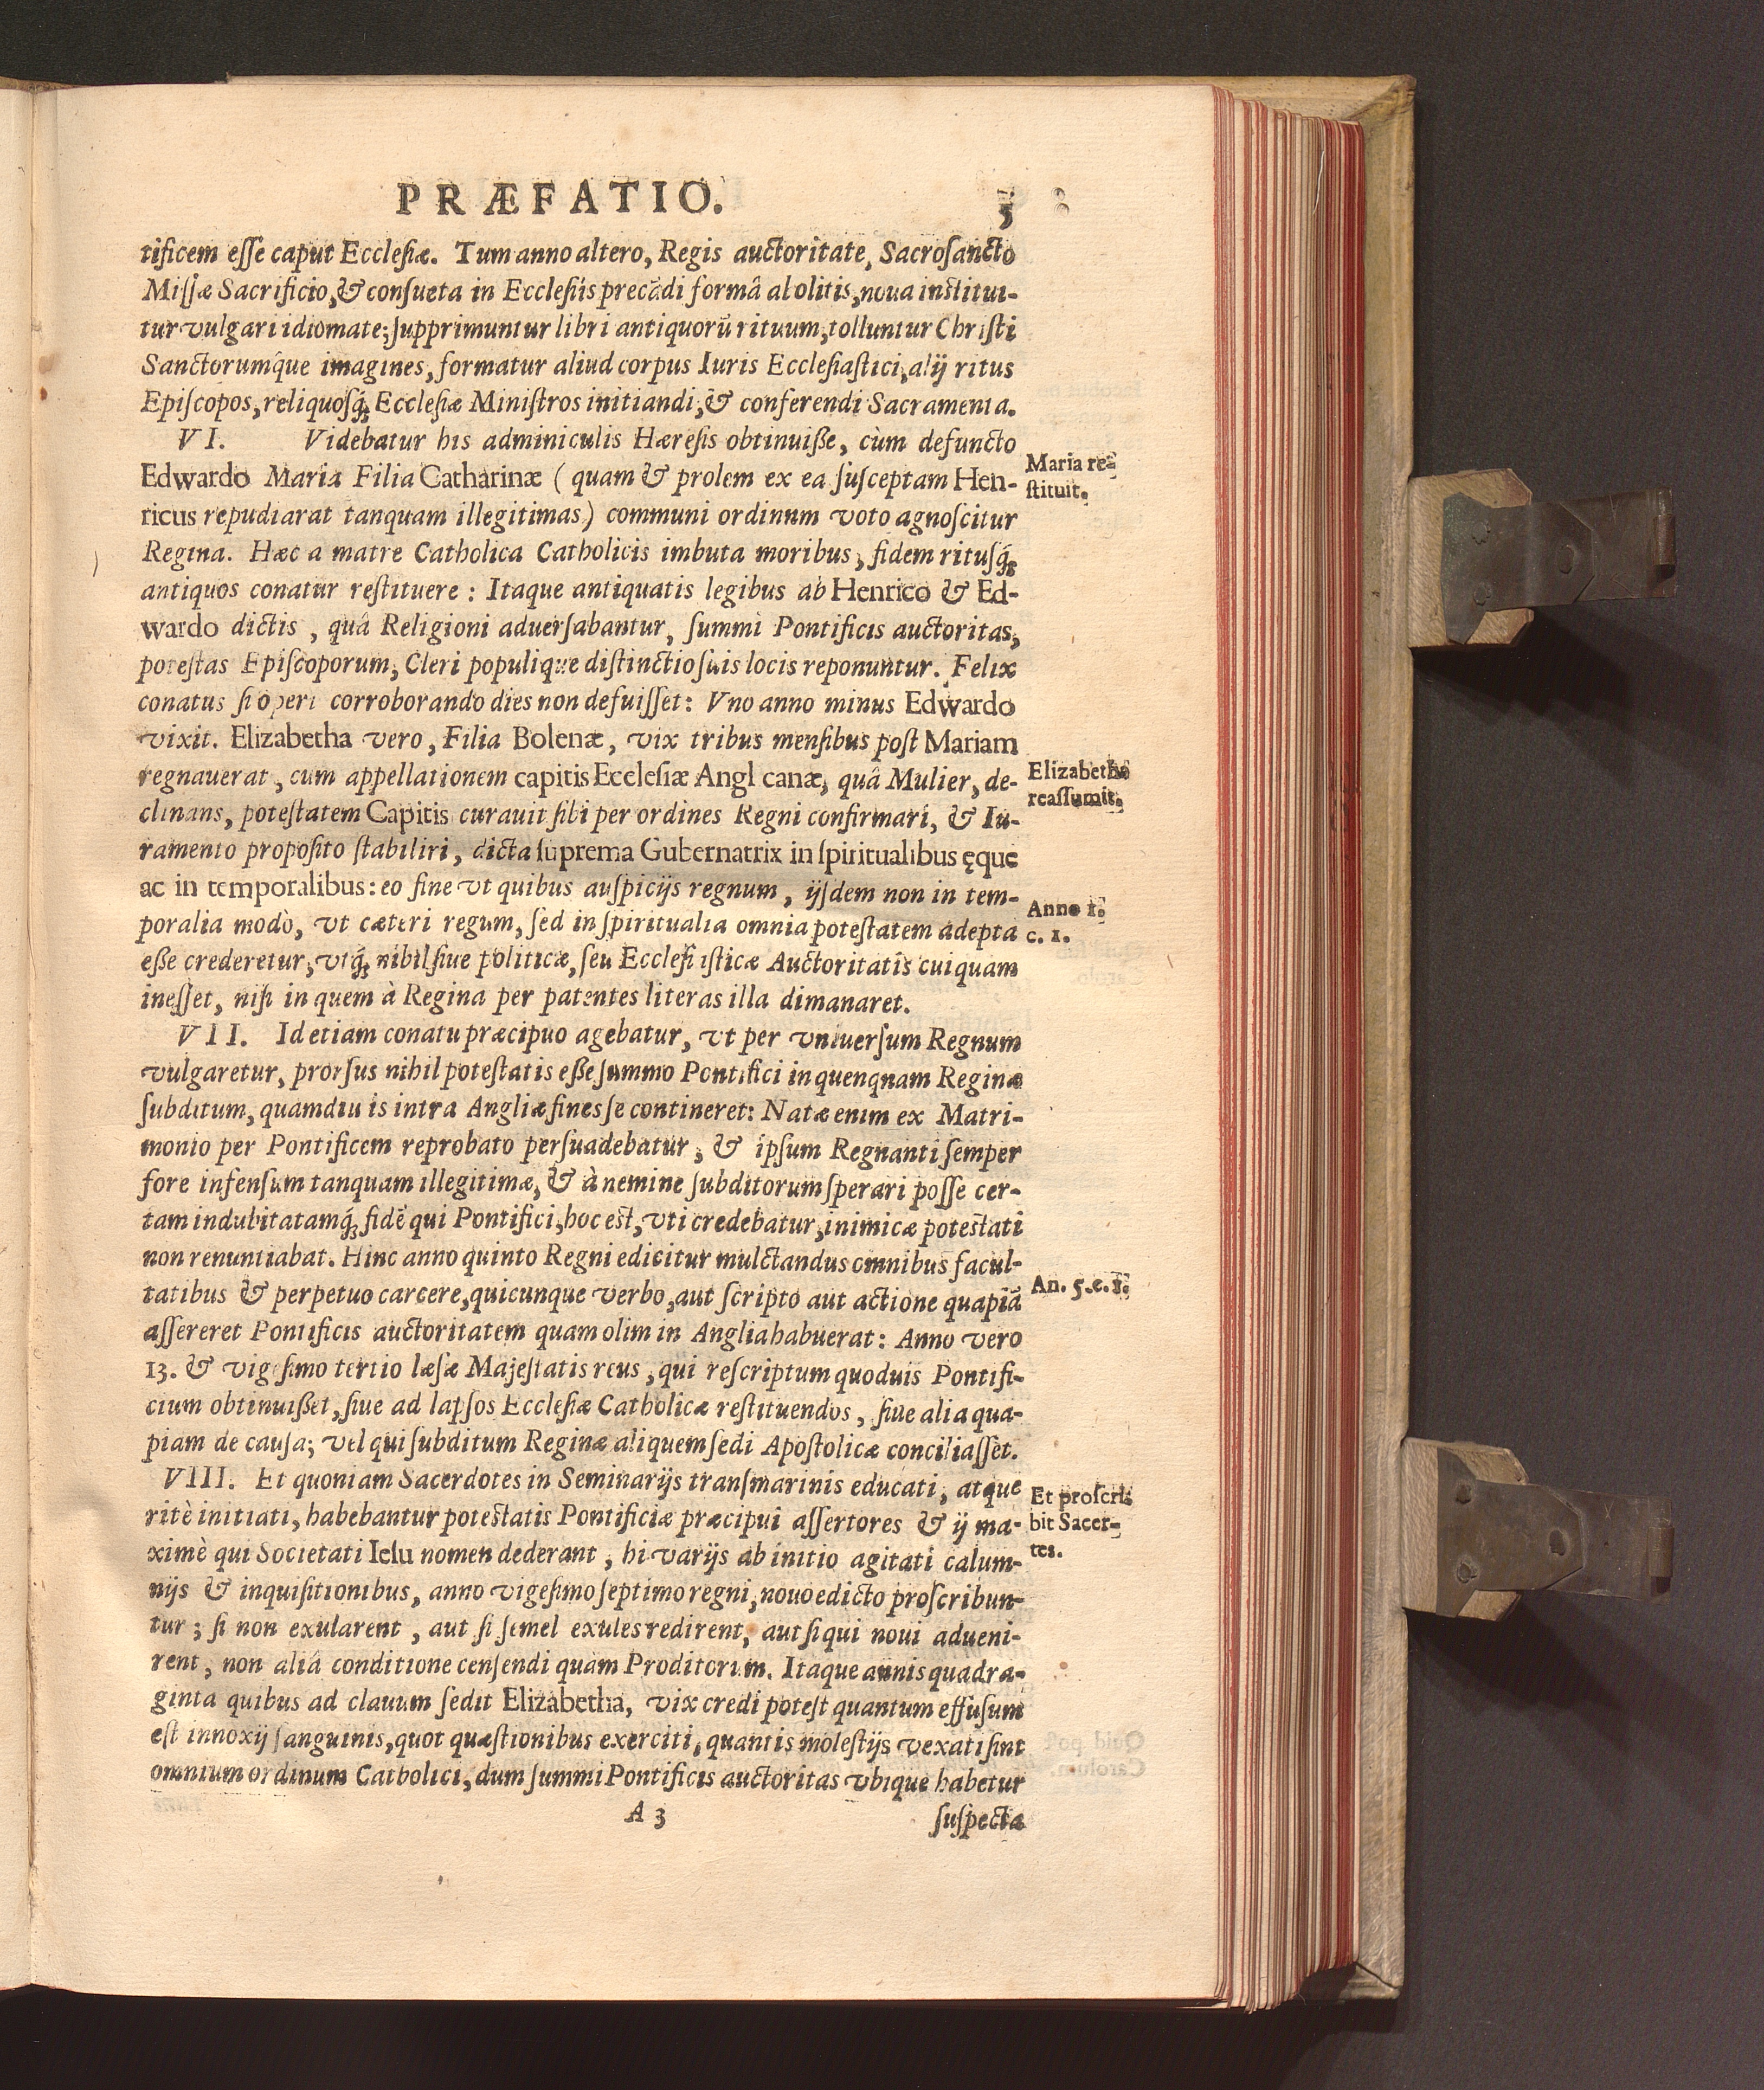 PRÆFATIO. 5
tificem eſſe caput Eccleſiæ. Tum anno altero, Regis auctoritate, Sacroſancto
Miſſæ Sacrificio, & conſueta in Eccleſiis precādi formâ abolitis, noua inſtitui-
tur vulgari idiomate; ſupprimuntur libri antiquorū rituum, tolluntur Chriſti
Sanctorumq́ue imagines, formatur aliud corpus Iuris Eccleſiaſtici, alij ritus
Epiſcopos, reliquoſq́; Eccleſiæ Miniſtros initiandi, & conferendi Sacramenta.
VI. Videbatur his adminiculis Hæreſis obtinuiße, cùm defuncto
Edwardo Maria Filia Catharinæ ( quam & prolem ex ea ſuſceptam Hen-
Maria re-
ſtituit.
ricus repudiarat tanquam illegitimas) communi ordinum voto agnoſcitur
Regina. Hæc a matre Catholica Catholicis imbuta moribus, fidem rituſq́;
antiquos conatur reſtituere : Itaque antiquatis legibus ab Henrico & Ed-
wardo dictis , quâ Religioni aduerſabantur, ſummi Pontificis auctoritas,
poteſtas Epiſcoporum, Cleri populique diſtinctio ſuis locis reponuntur. Felix
conatus ſi operi corroborando dies non defuiſſet: Vno anno minus Edwardo
vixit. Elizabetha vero, Filia Bolenæ, vix tribus menſibus poſt Mariam
regnauerat, cum appellationem capitis Eccleſiæ Angl canæ, quâ Mulier, de-
Elizabetha
reaſſumit.
clinans, poteſtatem Capitis curauit ſibi per ordines Regni confirmari, & Iu-
ramento propoſito ſtabiliri, dicta ſuprema Gubernatrix in ſpiritualibus ęque
ac in temporalibus: eo fine vt quibus auſpicijs regnum, ijſdem non in tem-
Anno 1.
c. 1.
poralia modò, vt cæteri regum, ſed in ſpiritualia omnia poteſtatem adepta
eße crederetur, vtq́; nihil ſiue politicæ, ſeu Eccleſiaſticæ Auctoritatis cuiquam
ineſſet, niſi in quem à Regina per patentes literas illa dimanaret.
VII. Id etiam conatu præcipuo agebatur, vt per vniuerſum Regnum
vulgaretur, prorſus nihil poteſtatis eße ſummo Pontifici in quenquam Reginæ
ſubditum, quamdiu is intra Angliæ fines ſe contineret: Natæ enim ex Matri-
monio per Pontificem reprobato perſuadebatur, & ipſum Regnanti ſemper
fore infenſum tanquam illegitimæ, & à nemine ſubditorum ſperari poſſe cer-
tam indubitatamq́; fidē qui Pontifici, hoc eſt, vti credebatur, inimicæ poteſtati
non renuntiabat. Hinc anno quinto Regni edicitur mulctandus omnibus facul-
tatibus & perpetuo carcere, quicunque verbo, aut ſcripto aut actione quapiā
An. 5. c. 1.
aſſereret Pontificis auctoritatem quam olim in Anglia habuerat: Anno vero
13. & vigeſimo tertio læſæ Majeſtatis reus, qui reſcriptum quoduis Pontifi-
cium obtinuißet, ſiue ad lapſos Eccleſiæ Catholicæ reſtituendos, ſiue alia qua-
piam de cauſa; vel qui ſubditum Reginæ aliquem ſedi Apoſtolicæ conciliaſſet.
VIII. Et quoniam Sacerdotes in Seminarijs tranſmarinis educati, atque
Et proſcri-
bit Sacer-
tes.
ritè initiati, habebantur poteſtatis Pontificiæ præcipui aſſertores & ij ma-
ximè qui Societati Ieſu nomen dederant, hi varijs ab initio agitati calum-
nijs & inquiſitionibus, anno vigeſimo ſeptimo regni, nouo edicto proſcribun-
tur; ſi non exularent, aut ſi ſemel exules redirent, aut ſi qui noui adueni-
rent, non aliâ conditione cenſendi quam Proditorum. Itaque annis quadra-
ginta quibus ad clauum ſedit Elizabetha, vix credi poteſt quantum effuſum
eſt innoxij ſanguinis, quot quæſtionibus exerciti, quantis moleſtijs vexati ſint
omnium ordinum Catholici, dum ſummi Pontificis auctoritas vbique habetur
A 3 ſuſpecta